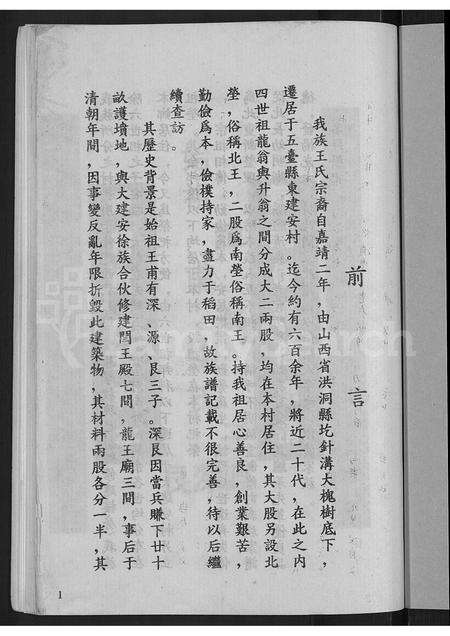 前言
我族王氏宗裔自嘉靖二年，由山西省洪洞縣圪針溝大槐樹底下，
遷居于五臺縣東建安村。迄今約有六百余年，將近二十代，在此之內
四世祖龍翁與升翁之間分成大二兩股，均在本村居住，其大股另設北
塋，俗稱北王，二股爲南塋俗稱南王。持我祖居心善良，創業艱苦，
勤儉爲本，儉樸持家，盡力于稻田，故族譜記載不很完善，待以后繼
續查訪。
其歷史背景是始祖王甫有深、源、艮三子。深艮因當兵賺下廿十
畝護墳地，與大建安徐族合伙修建閻王殿七間，龍王廟三間，事后于
清朝年間，因事變反亂年限折毀此建築物，其材料兩股各分一半，其
1